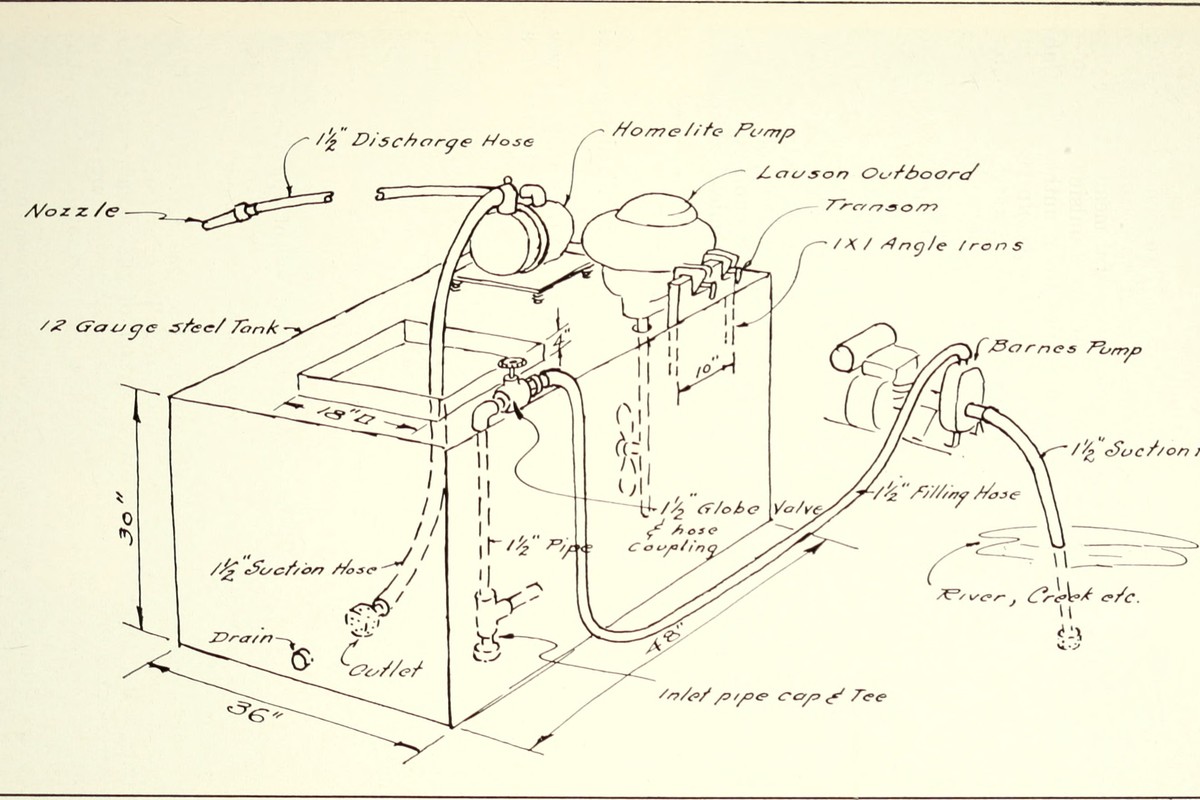 1½" Discharge Hose
Homelite Pump
Lauson Outboard
Nozzle
Transom
1X1 Angle Irons
12 Gauge steel Tank
4"
Barnes Pump
10"
18"□
1½" Suction
30"
1½" Filling Hose
1½" Globe Valve
& hose
coupling
1½" Pipe
1½" Suction Hose
River, Creek etc.
Drain
Outlet
48"
Inlet pipe cap & Tee
36"